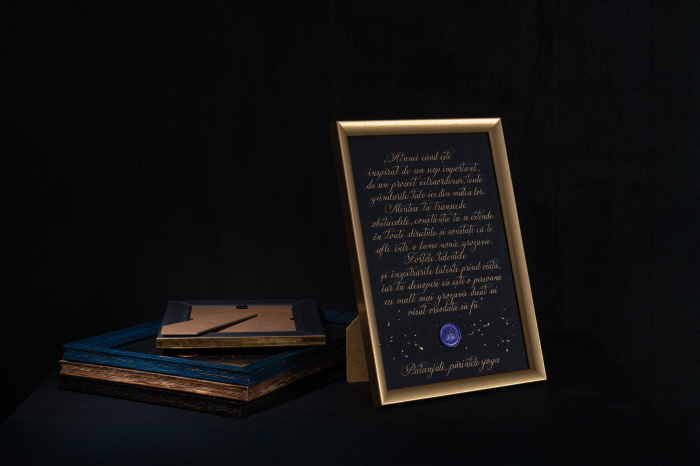 „Atunci când ești
inspirat de un scop important,
de un proiect extraordinar, toate
gândurile tale ies din matca lor.
Mintea ta transcede
obstacolele, constanta ta se extinde
în toate direcțiile și constați că te
afli într-o lume nouă, grozava.
Forțele, talentele
și înzestrările latente prind viață,
iar tu descoperi că ești o persoana
cu mult mai grozavă decât ai
visat vreodată să fii.
Patanjali, părintele yoga